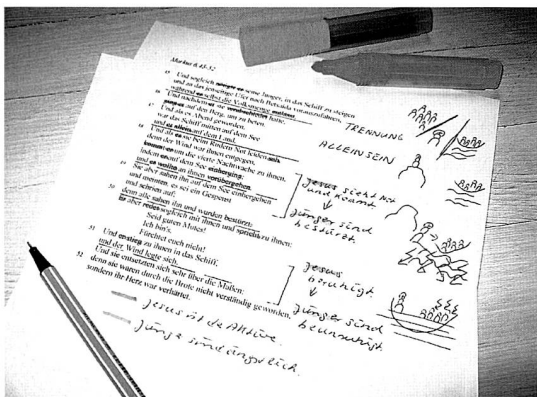 Markus 6,45-52
45 Und sogleich nötigte er seine Jünger, in das Schiff zu steigen
und an das jenseitige Ufer nach Betsaida vorauszufahren,
während er selbst die Volksmenge entlasse.
46 Und nachdem er sie verabschiedet hatte,
ging er auf den Berg, um zu beten.
47 Und als es Abend geworden,
war das Schiff mitten auf dem See
und er allein auf dem Land.
48 Und als er sie beim Rudern Not leiden sah,
denn der Wind war ihnen entgegen,
kommt er um die vierte Nachtwache zu ihnen,
indem er auf dem See einherging;
und er wollte an ihnen vorübergehen.
49 Sie aber sahen ihn auf dem See einhergehen
und meinten, es sei ein Gespenst
und schrien auf;
50 denn alle sahen ihn und wurden bestürzt;
er aber redete sogleich mit ihnen und spricht zu ihnen:
Seid guten Mutes!
Ich bin's.
Fürchtet euch nicht!
51 Und er stieg zu ihnen in das Schiff,
und der Wind legte sich.
Und sie entsetzten sich sehr über die Maßen;
52 denn sie waren durch die Brote nicht verständig geworden,
sondern ihr Herz war verhärtet.
TRENNUNG
ALLEINSEIN
Jesus sieht Not
und kommt.
Jünger sind
bestürzt.
Jesus
beruhigt.
Jünger sind
beunruhigt.
Jesus ist de Aktive.
Jünge sind ängstlich.